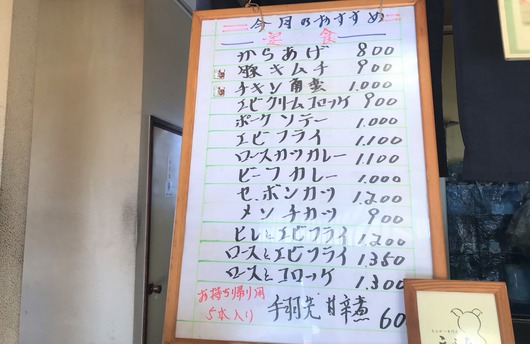 今月のおすすめ
定食
からあげ 800
豚キムチ 900
チキン角煮 1,000
エビクリームコロッケ 900
ポークソテー 1,000
エビフライ 1,100
ロースカツカレー 1,100
ビーフカレー 1,000
セ.ボンカツ 1,200
メンチカツ 900
ヒレとエビフライ 1,200
ロースとエビフライ 1,350
ロースとコロッケ 1,300
お持ち帰り用
5本入り 手羽先甘辛煮 60